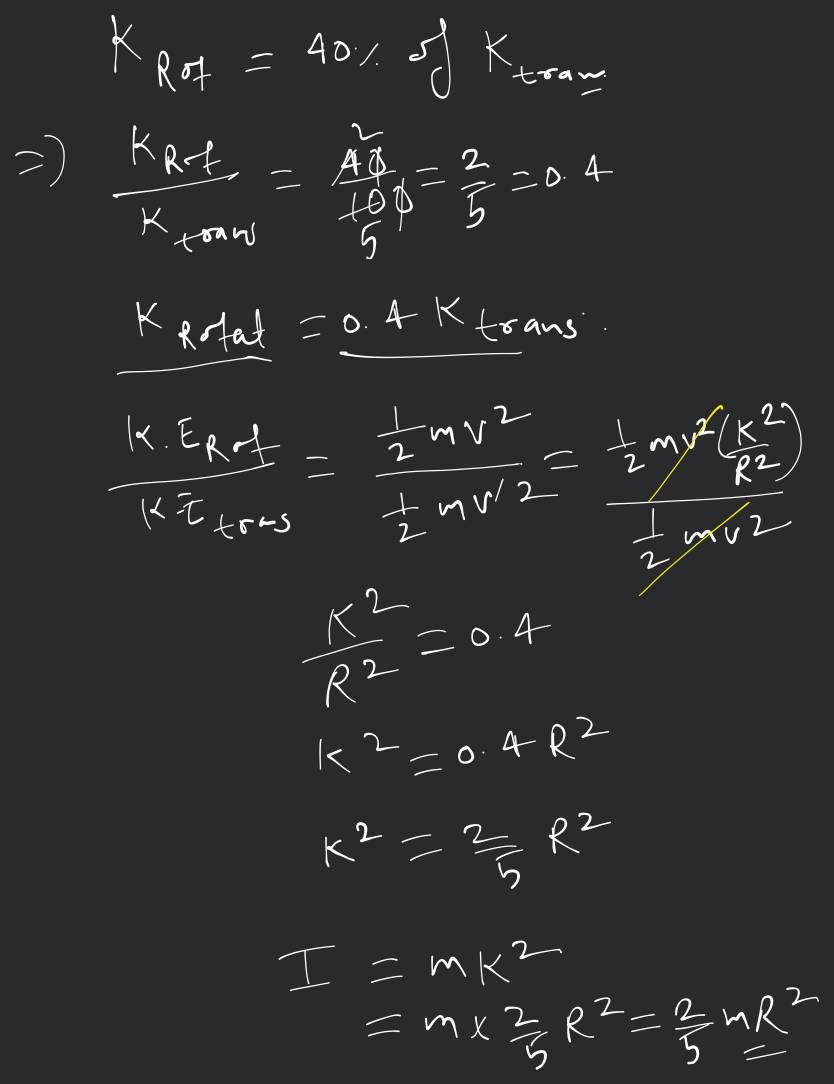 K Rot = 40% of K trans
=> K Rot / K trans = 40/100 2/5 = 2/5 = 0.4
K Rotat = 0.4 K trans.
K.E Rot / KE trans = ½ mv² / ½ mv² = ½ mv² (K²/R²) / ½ mv²
K²/R² = 0.4
K² = 0.4 R²
K² = 2/5 R²
I = mK²
= m x 2/5 R² = 2/5 mR²